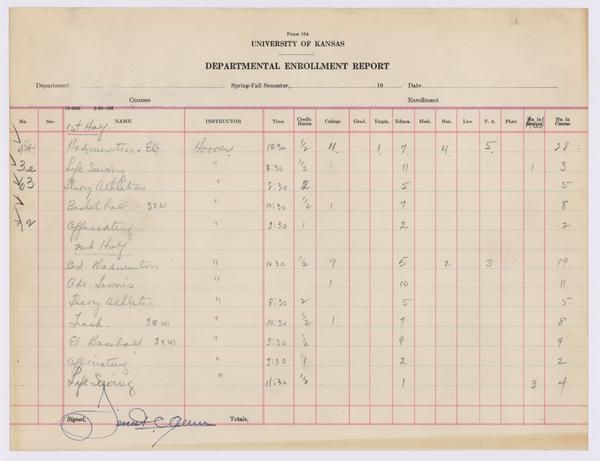 Form 104
UNIVERSITY OF KANSAS
DEPARTMENTAL ENROLLMENT REPORT
Department Spring-Fall Semester, 19 Date
Courses Enrollment
No. Sec. NAME INSTRUCTOR Time Credit Hours College Grad. Engin. Educa. Med. Bus. Law F. A. Phar. No. in No. in Course
1st Half
Badminton - El. Hoover 10:30 1/2 11 1 7 4 5 28
3e Life Saving " 2:30 1/2 11 1 3
63 Theory Athletics " 8:30 2 5 5
Basket ball 32W " 10:30 1/2 1 7 8
Officiating " 3:30 1 2 2
2nd Half
Badminton " 10:30 1/2 9 5 2 3 19
Adv. Tennis " 1 10 11
Theory Athletics " 8:30 2 5 5
Track 38W " 10:30 1/2 1 7 8
El Baseball 34W " 2:30 1/2 9 9
Officiating " 3:30 1 2 2
Life Saving " 11:30 1/2 1 3 4
Signed, Totals,